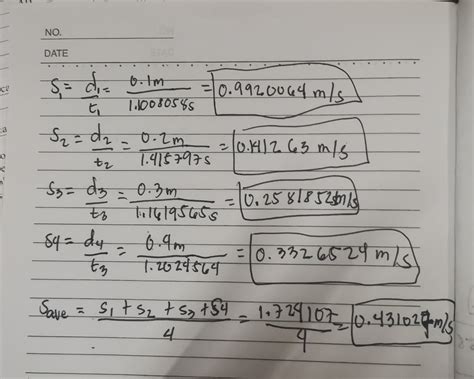 NO.
DATE
S₁ = d₁/t₁ = 0.1m/1.1008058s = 0.9920064 m/s
S₂ = d₂/t₂ = 0.2m/1.415797s = 0.141263 m/s
S₃ = d₃/t₃ = 0.3m/1.1619565s = 0.2581852 m/s
S4 = d₄/t₃ = 0.4m/1.2024564 = 0.3326524 m/s
Save = S₁ + S₂ + S₃ + S4/4 = 1.724107/4 = 0.431027 m/s